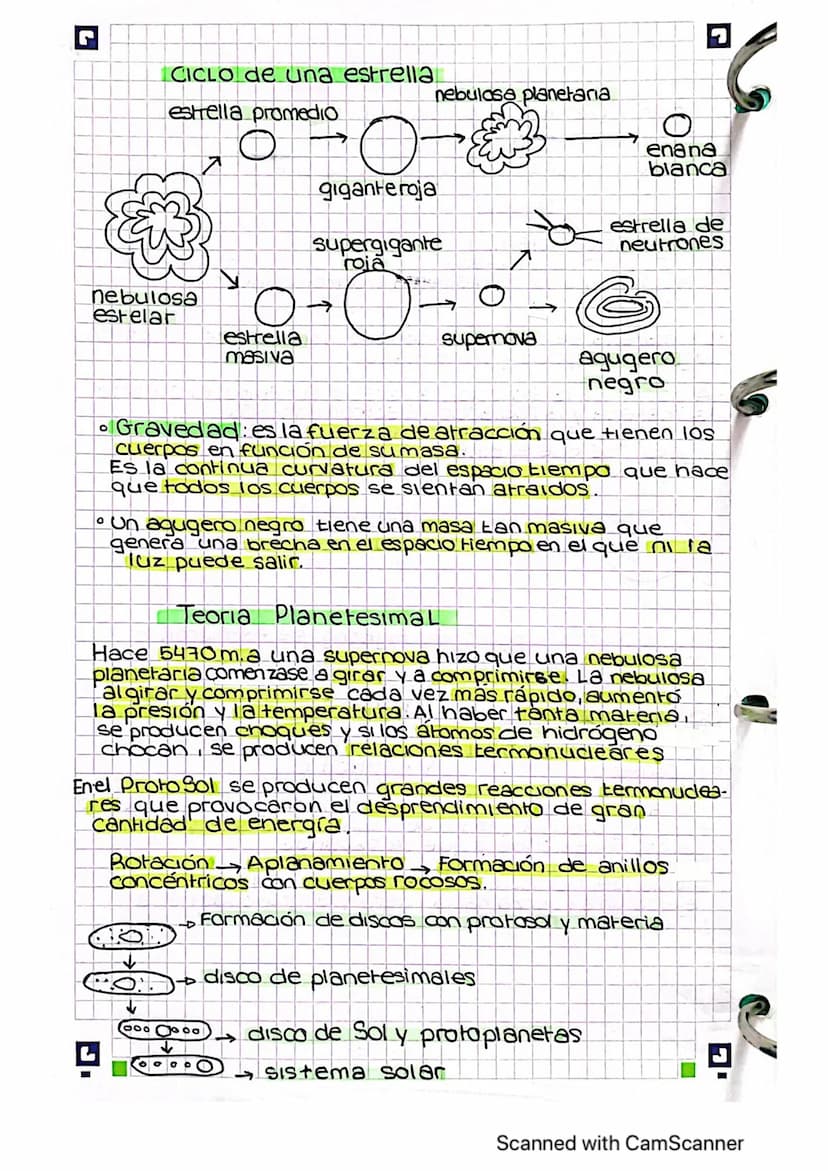 CICLO de una estrella
nebulosa planetaria
estrella promedio
enana
blanca
gigante roja
estrella de
neutrones
supergigante
roja
nebulosa
estelar
estrella
masiva
supernova
agugero
negro
• Gravedad: es la fuerza de atracción que tienen los
cuerpos en función de su masa.
Es la continua curvatura del espacio tiempo que hace
que todos los cuerpos se sientan atraidos.
• Un agugero negro tiene una masa tan masiva que
genera una brecha en el espacio tiempo en el que ni la
luz puede salir.
Teoria Planetesimal
Hace 5470 m.a una supernova hizo que una nebulosa
planetaria comenzase a girar y a comprimirse. La nebulosa
al girar y comprimirse cada vez más rápido, aumentó
la presión y la temperatura. Al haber tanta materia,
se producen choques y si los átomos de hidrógeno
chocan, se producen relaciones termonucleares
En el ProtoSol se producen grandes reacciones termonuclea-
res que provocaron el desprendimiento de gran
cantidad de energía.
Rotación → Aplanamiento → Formación de anillos
concéntricos con cuerpos rocosos.
→ Formación de discos con protosol y materia
→ disco de planetesimales
→ disco de Sol y protoplanetas
→ sistema solar
Scanned with CamScanner